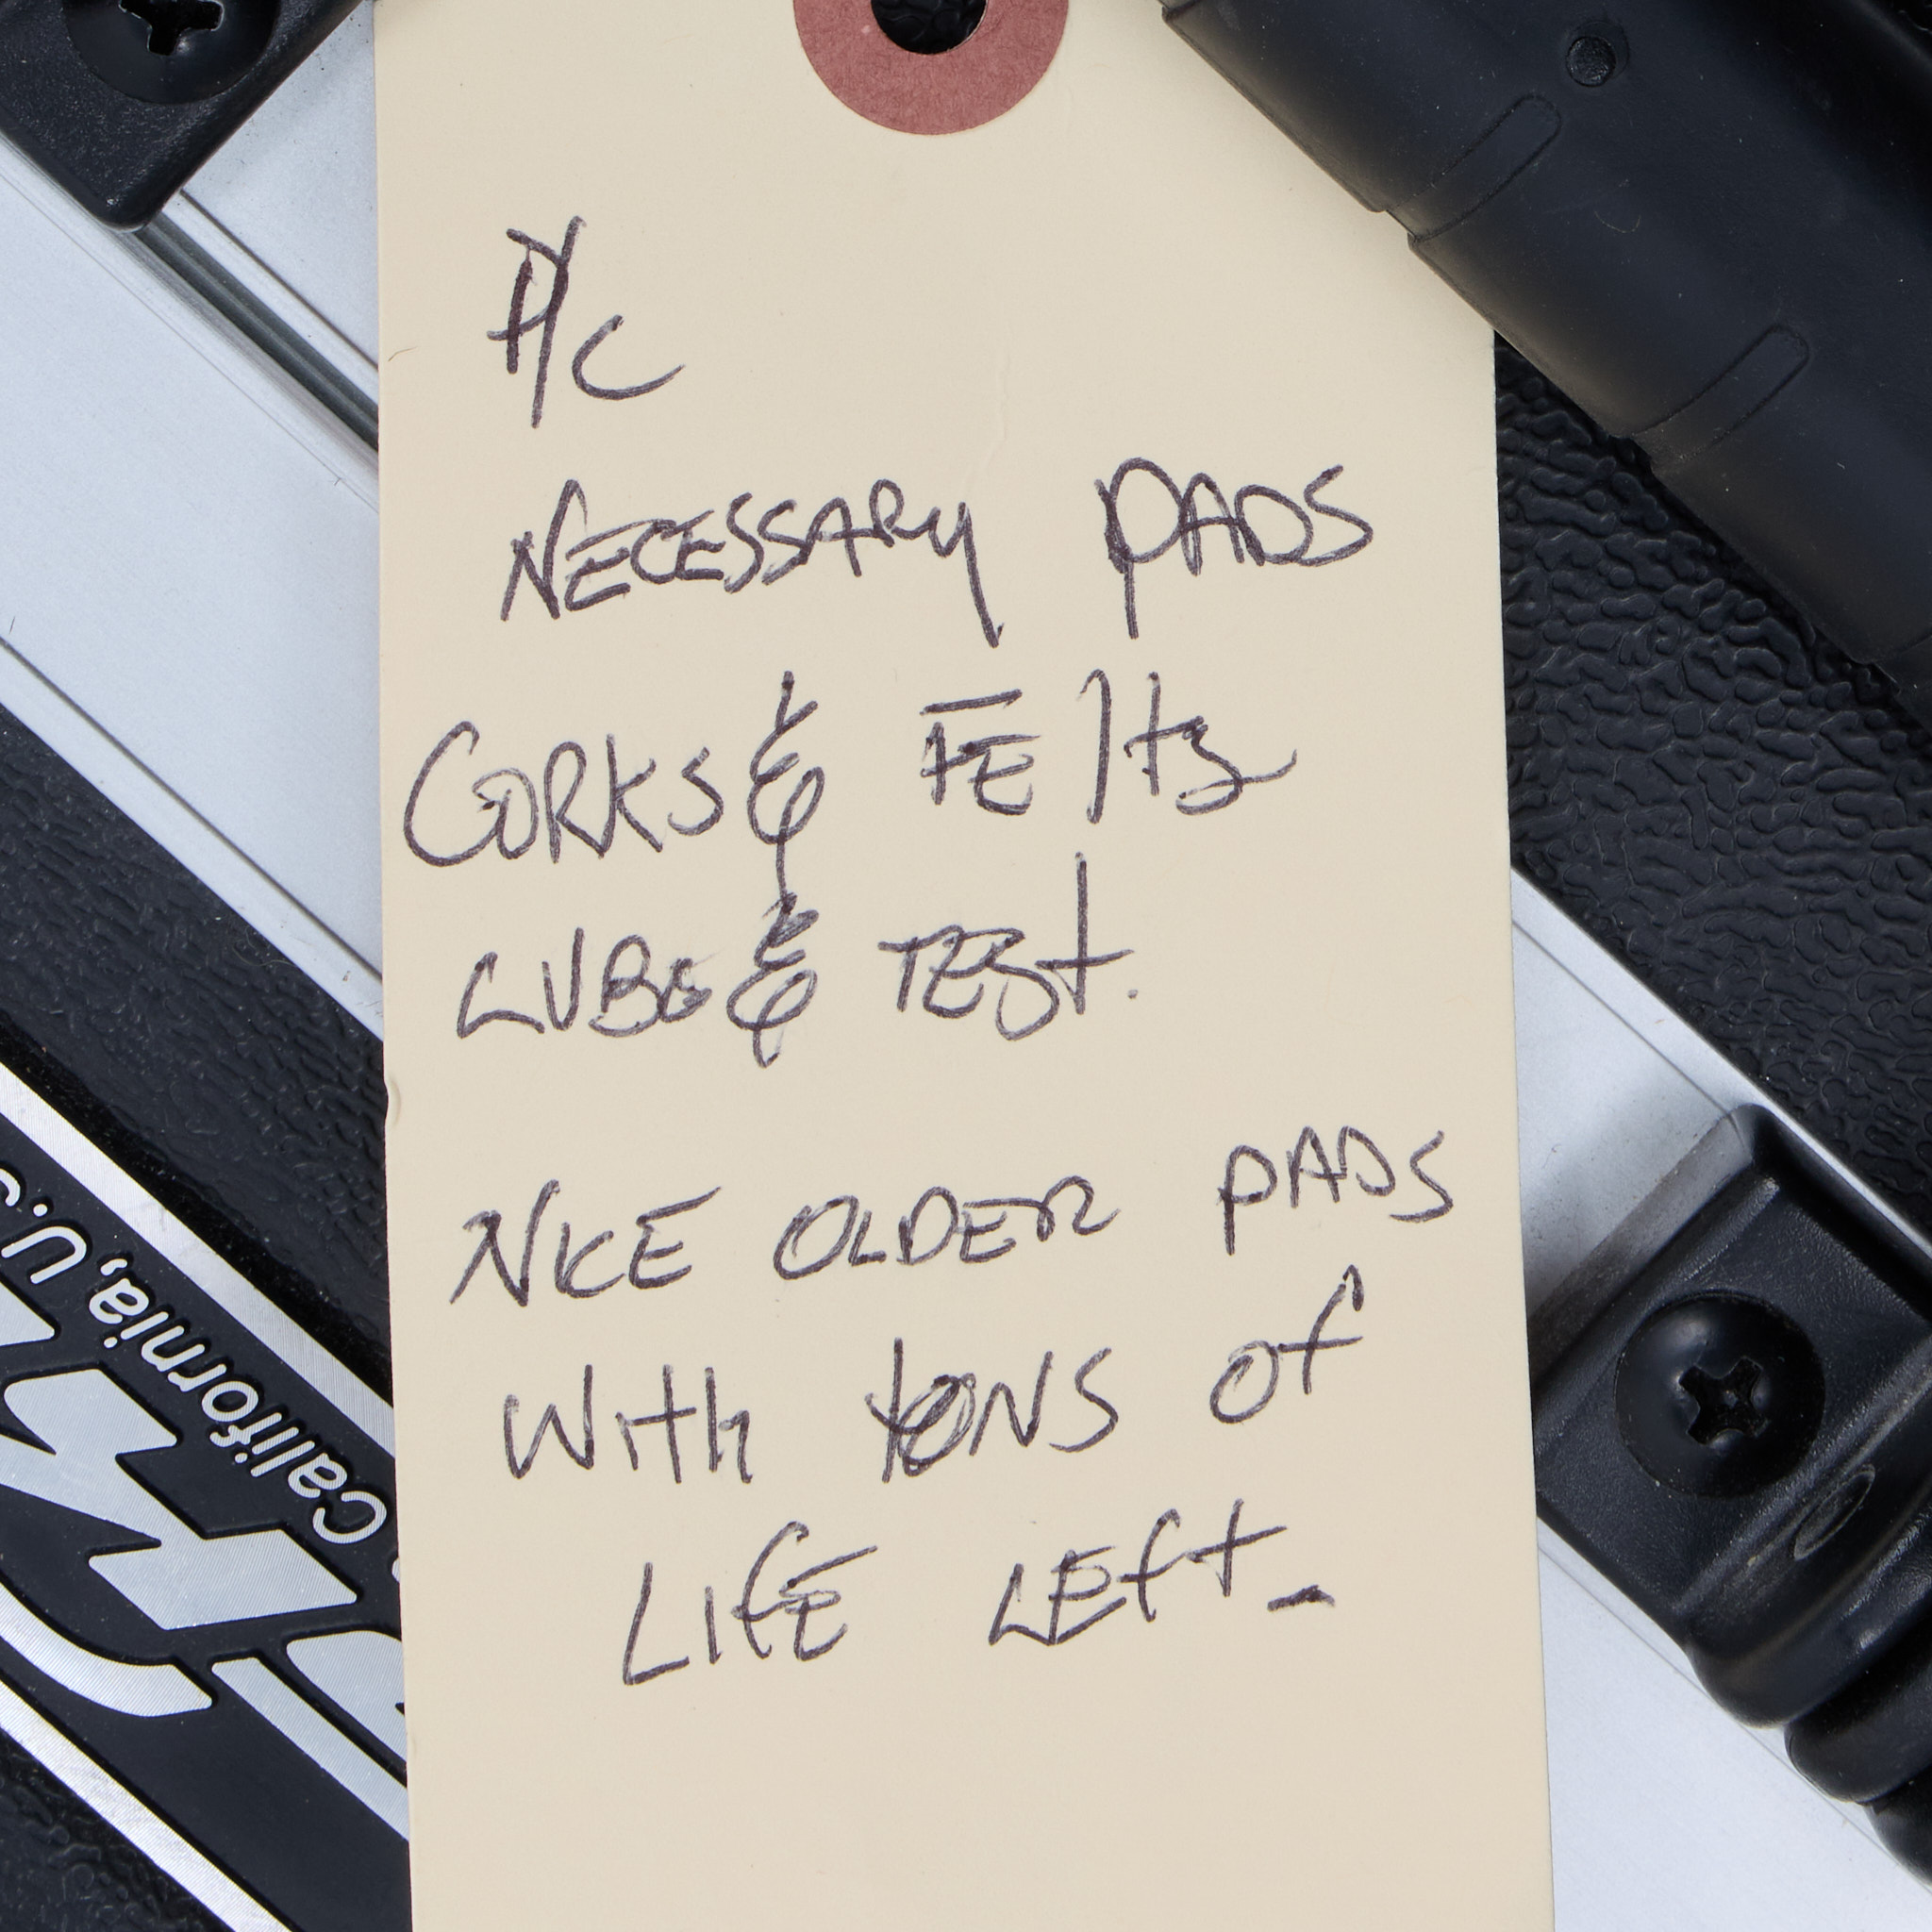 P/C
NECESSARY PADS
CORKS & FEltS
LUBE & TEST.
NICE OLDER PADS
With tONS Of
LIfE LEft_
California, U.S